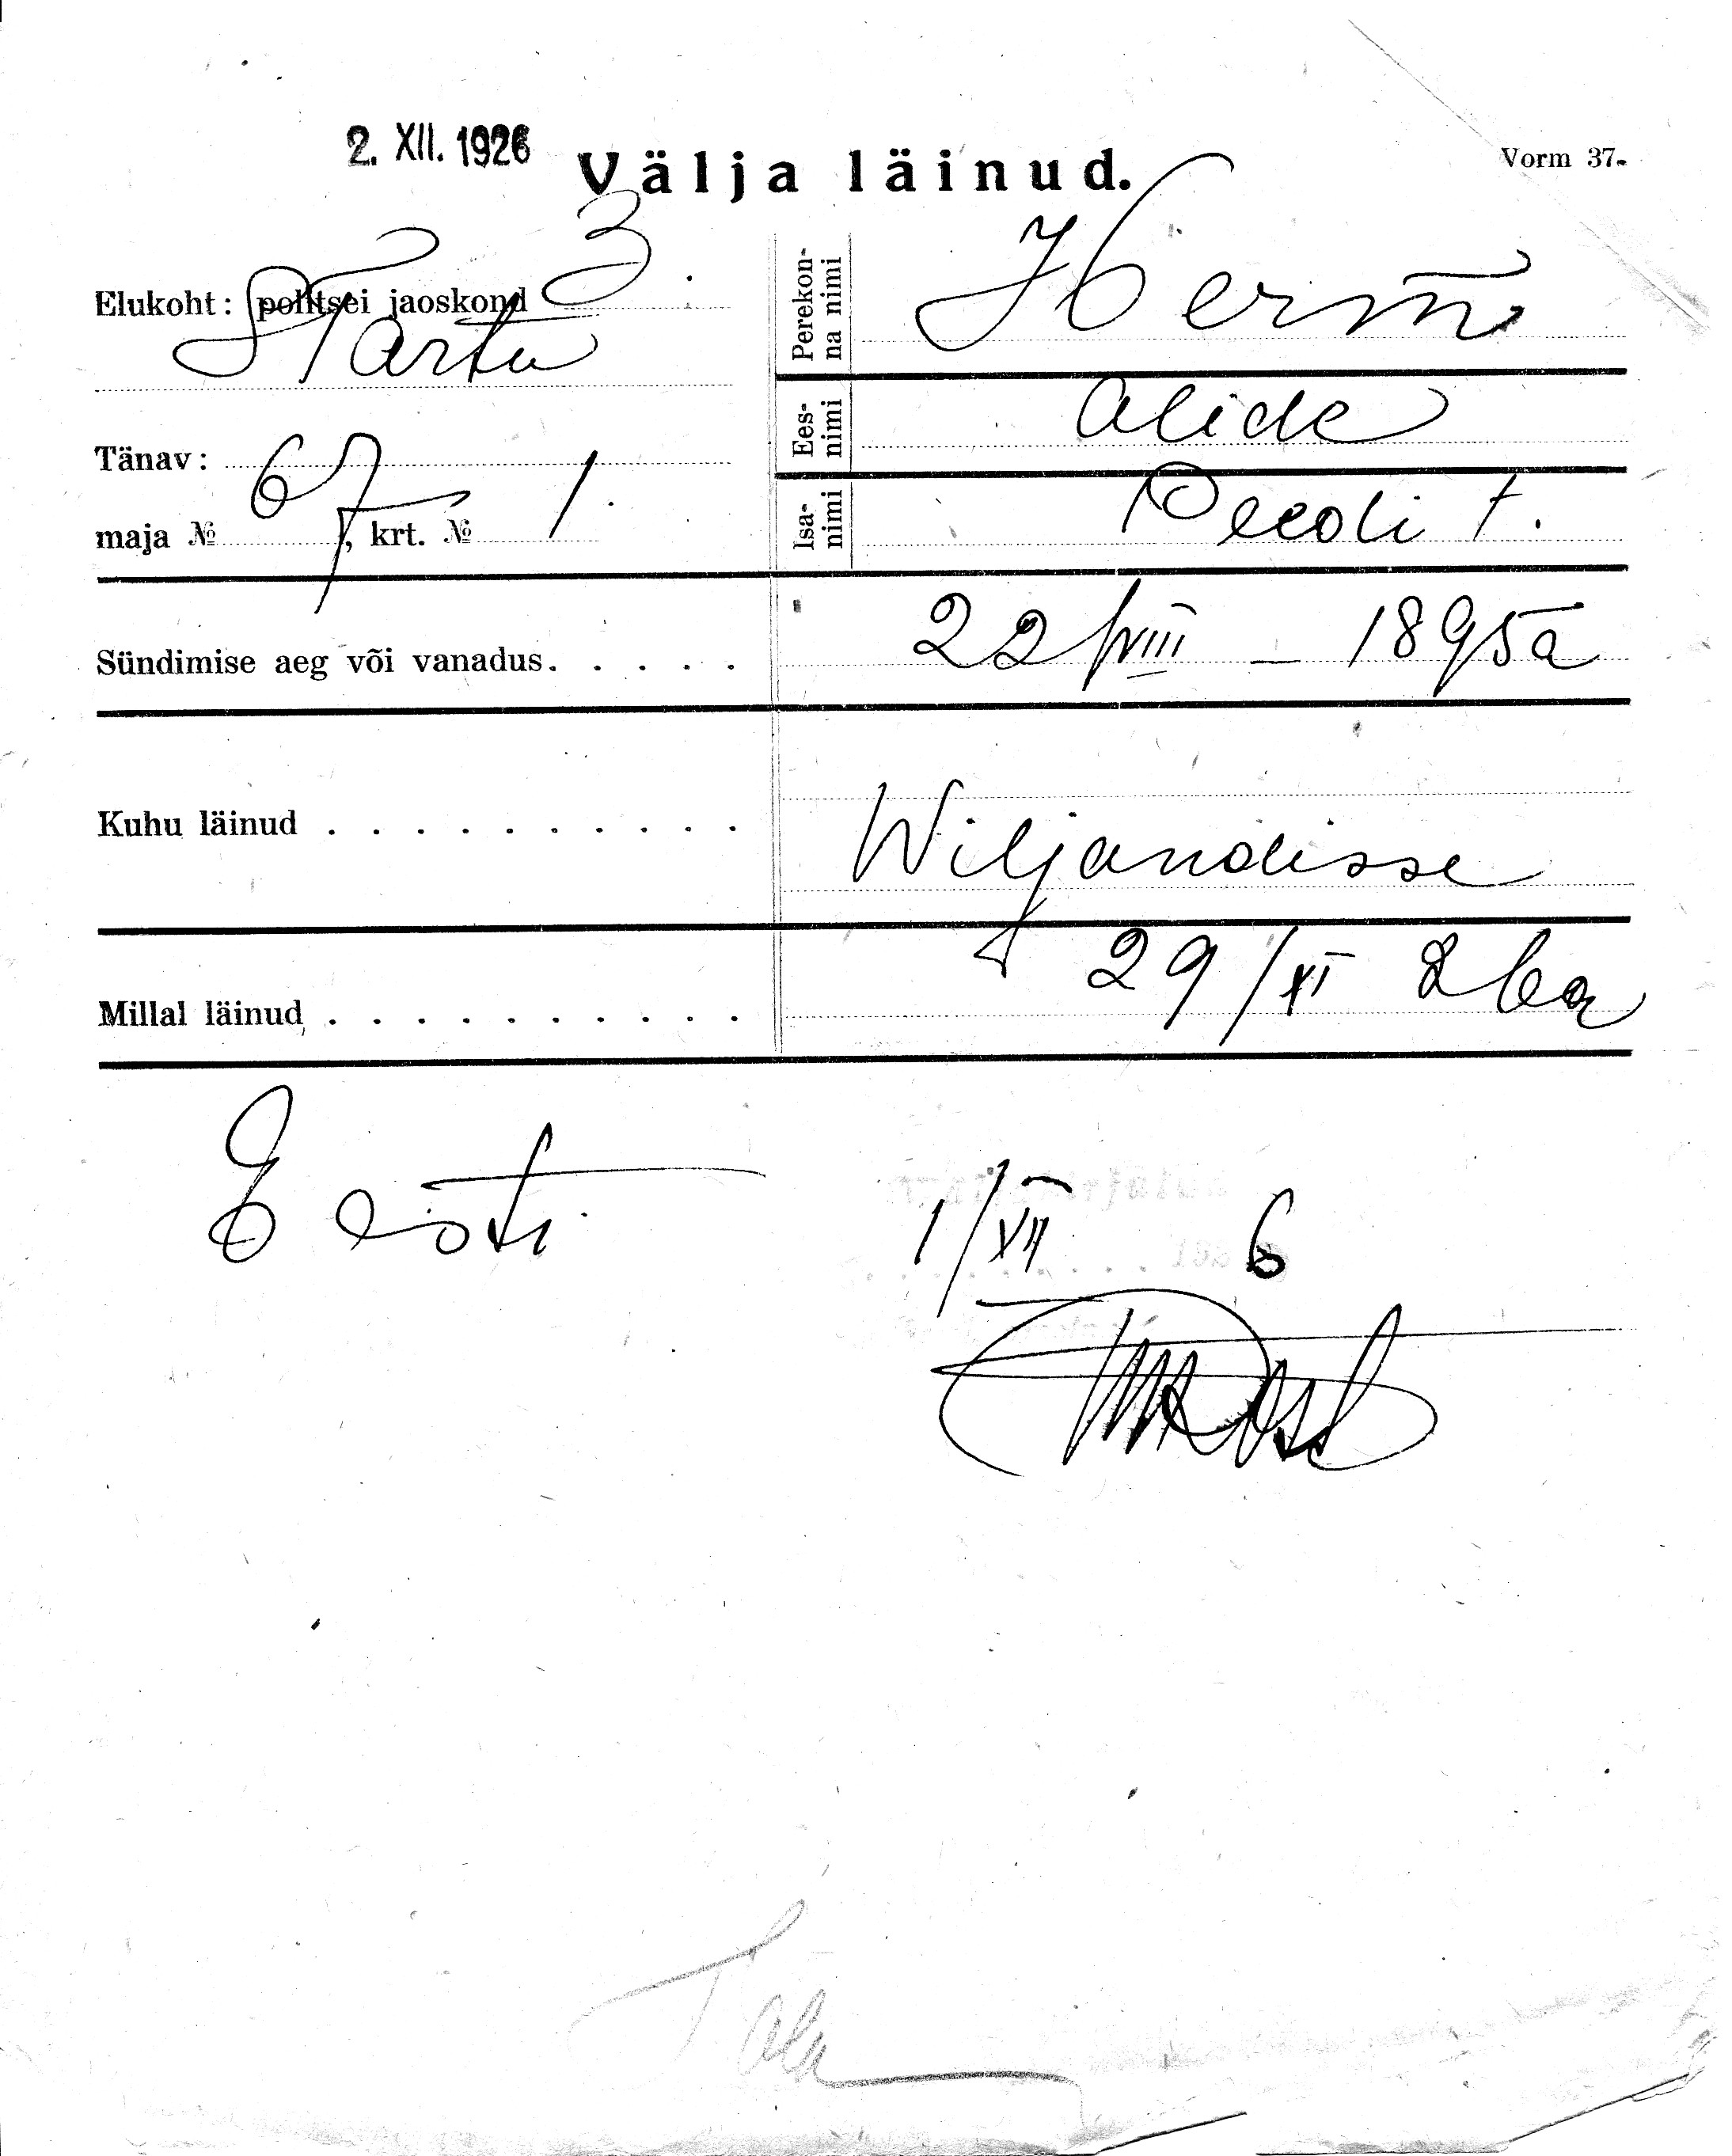 2. XII. 1926
Välja läinud.
Vorm 37.
Elukoht: politsei jaoskond 3.
Tartu
Tänav:
maja № 67, krt. № 1.
Perekonna nimi
Herm
Eesnimi
Alide
Isanimi
Peedi t.
Sündimise aeg või vanadus. . . . .
22/VIII – 1895a
Kuhu läinud . . . . . . . . . .
Wiljandisse
Millal läinud . . . . . . . . . .
29/XI 26a
Eesti
1/XII 6